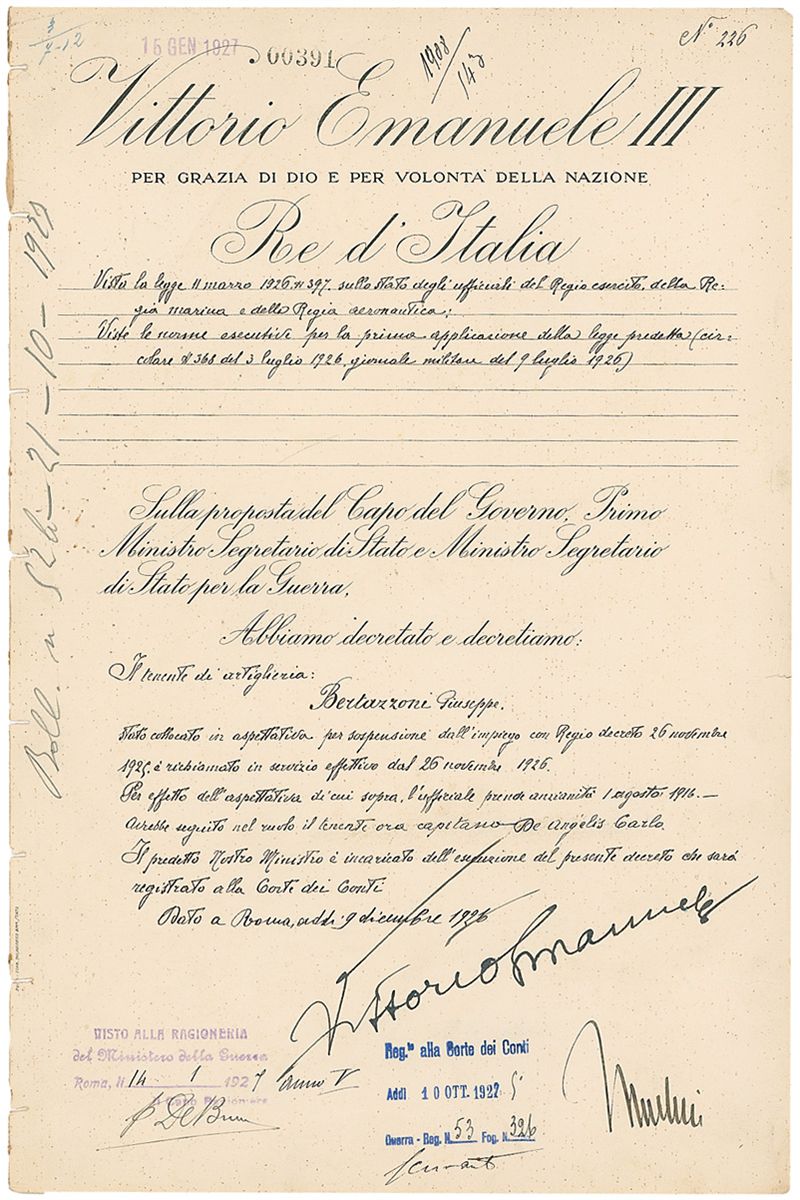 15 GEN 1927
00391
1908/143
Nº 226
Vittorio Emanuele III
PER GRAZIA DI DIO E PER VOLONTA' DELLA NAZIONE
Re d'Italia
Vista la legge 11 marzo 1926, nº 397, sullo stato degli ufficiali del Regio esercito, della Re-
gia marina e della Regia aeronautica;
Viste le norme esecutive per la prima applicazione della legge predetta (cir-
colare nº 368 del 3 luglio 1926, giornale militare del 9 luglio 1926)
Sulla proposta del Capo del Governo, Primo
Ministro Segretario di Stato e Ministro Segretario
di Stato per la Guerra,
Abbiamo decretato e decretiamo:
Il tenente di artiglieria:
Bertazzoni Giuseppe.
stato collocato in aspettativa per sospensione dall'impiego con Regio decreto 26 novembre
1925, è richiamato in servizio effettivo dal 26 novembre 1926.
Per effetto dell'aspettativa di cui sopra, l'ufficiale prende anzianità 1 agosto 1916. —
Avrebbe seguito nel ruolo il tenente ora capitano De Angelis Carlo.
Il predetto Nostro Ministro è incaricato dell'esecuzione del presente decreto che sarà
registrato alla Corte dei Conti
Dato a Roma, addì 9 dicembre 1926
Vittorio Emanuele
VISTO ALLA RAGIONERIA
del Ministero della Guerra
Roma, li 14 1 1927 anno V
Il Capo Ragioniere
Reg.to alla Corte dei Conti
Addì 10 OTT. 1927
Guerra - Reg. N. 53 Fog. N. 326
Boll. n 52 21-10-1927